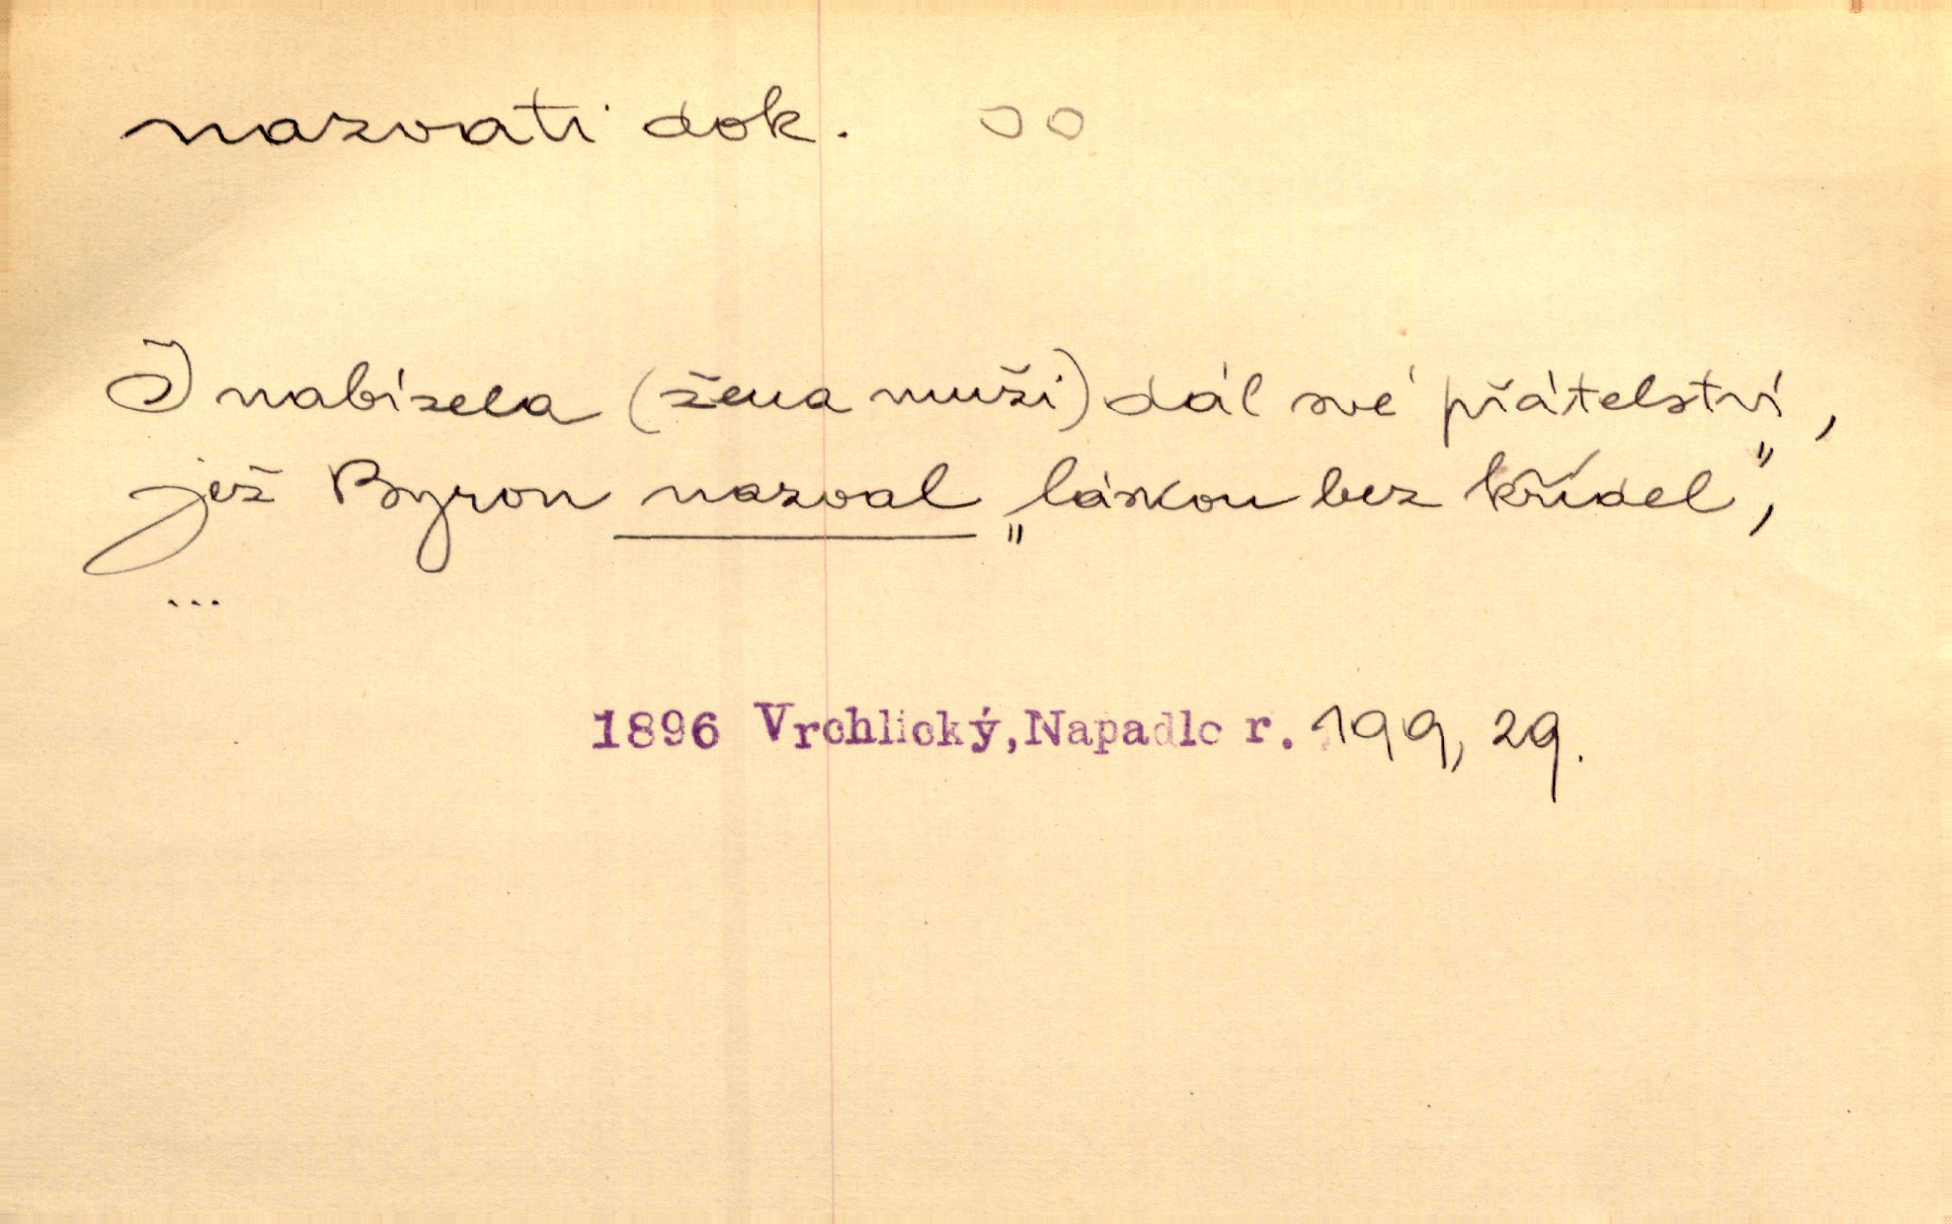 nazvati dok. oo
I nabízela (žena muži) dál své přátelství,
jež Byron nazval „láskou bez křídel",
...
1896 Vrchlický, Napadlo r. 199, 29.